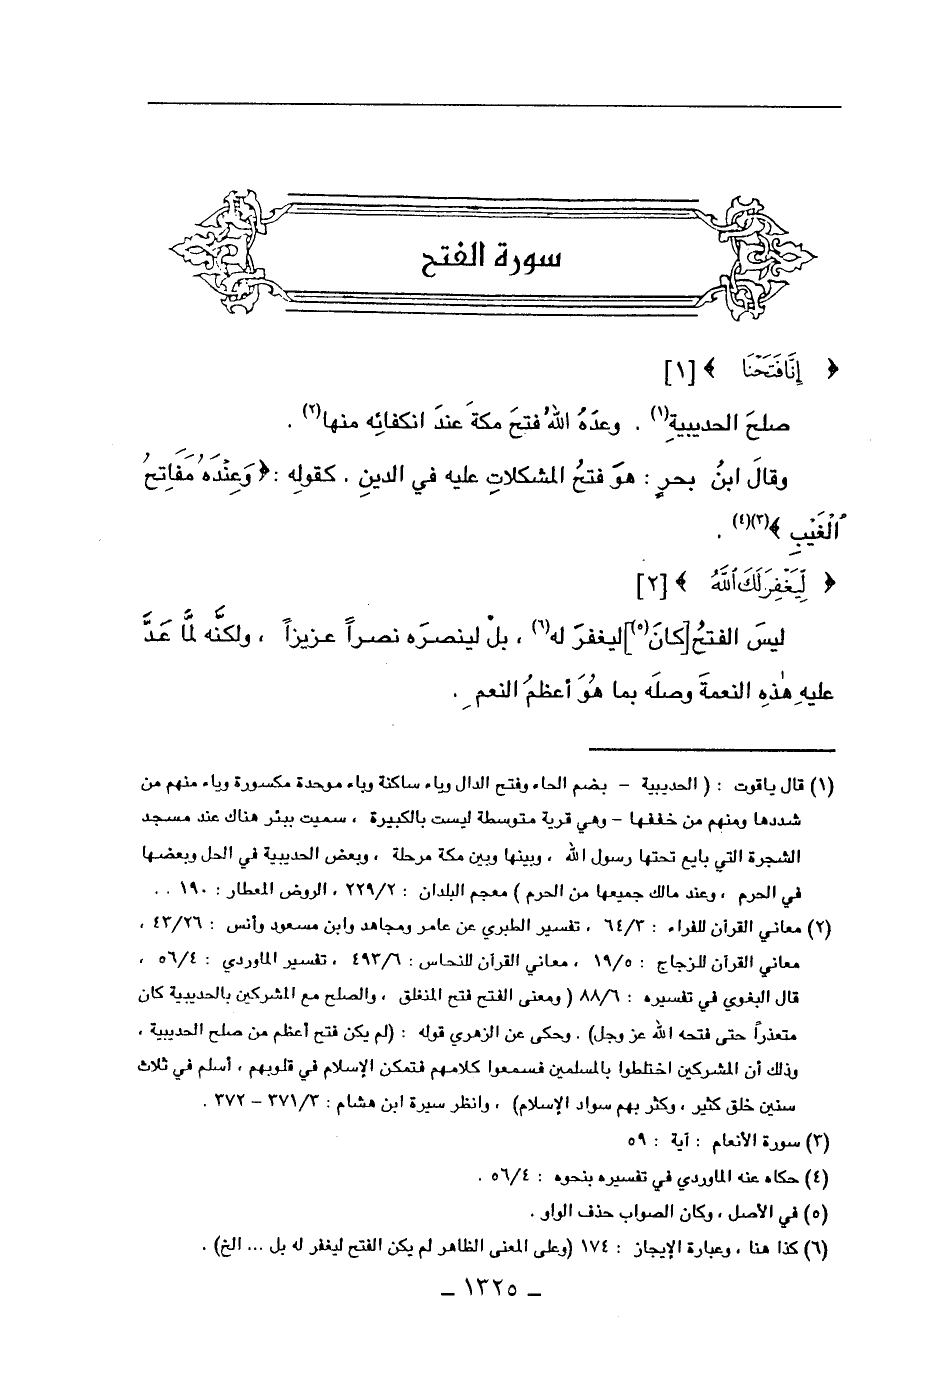 سورة الفتح
﴿ إِنَّا فَتَحْنَا ﴾ [١]
صلحَ الحديبيةِ(١) . وعدَهُ اللهُ فتحَ مكةَ عندَ انكفائِه منها(٢) .
وقالَ ابنُ بحرٍ : هوَ فتحُ المشكلاتِ عليه في الدينِ . كقولِه : ﴿ وَعِنْدَهُ مَفَاتِحُ
ٱلْغَيْبِ ﴾(٣)(٤) .
﴿ لِّيَغْفِرَ لَكَ ٱللَّهُ ﴾ [٢]
ليسَ الفتحُ [كانَ(٥)] ليغفرَ له(٦) ، بلْ لينصرَه نصراً عزيزاً ، ولكنَّه لمَّا عَدَّ
عليهِ هٰذِهِ النعمةَ وصلَه بما هُوَ أعظمُ النعمِ .
(١) قال ياقوت : ( الحديبية – بضم الحاء وفتح الدال وياء ساكنة وباء موحدة مكسورة وياء منهم من
شددها ومنهم من خففها – وهي قرية متوسطة ليست بالكبيرة ، سميت ببئر هناك عند مسجد
الشجرة التي بايع تحتها رسول الله ، وبينها وبين مكة مرحلة ، وبعض الحديبية في الحل وبعضها
في الحرم ، وعند مالك جميعها من الحرم ) معجم البلدان : ٢٢٩/٢ ، الروض المعطار : ١٩٠ . .
(٢) معاني القرآن للفراء : ٦٤/٣ ، تفسير الطبري عن عامر ومجاهد وابن مسعود وأنس : ٤٣/٢٦ ،
معاني القرآن للزجاج : ١٩/٥ ، معاني القرآن للنحاس : ٤٩٣/٦ ، تفسير الماوردي : ٥٦/٤ ،
قال البغوي في تفسيره : ٨٨/٦ ( ومعنى الفتح فتح المنغلق ، والصلح مع المشركين بالحديبية كان
متعذراً حتى فتحه الله عز وجل) . وحكى عن الزهري قوله : (لم يكن فتح أعظم من صلح الحديبية ،
وذلك أن المشركين اختلطوا بالمسلمين فسمعوا كلامهم فتمكن الإسلام في قلوبهم ، أسلم في ثلاث
سنين خلق كثير ، وكثر بهم سواد الإسلام) ، وانظر سيرة ابن هشام : ٣٧١/٣ – ٣٧٢ .
(٣) سورة الأنعام : آية : ٥٩
(٤) حكاه عنه الماوردي في تفسيره بنحوه : ٥٦/٤ .
(٥) في الأصل ، وكان الصواب حذف الواو .
(٦) كذا هنا ، وعبارة الإيجاز : ١٧٤ (وعلى المعنى الظاهر لم يكن الفتح ليغفر له بل ... الخ) .
– ١٣٢٥ –